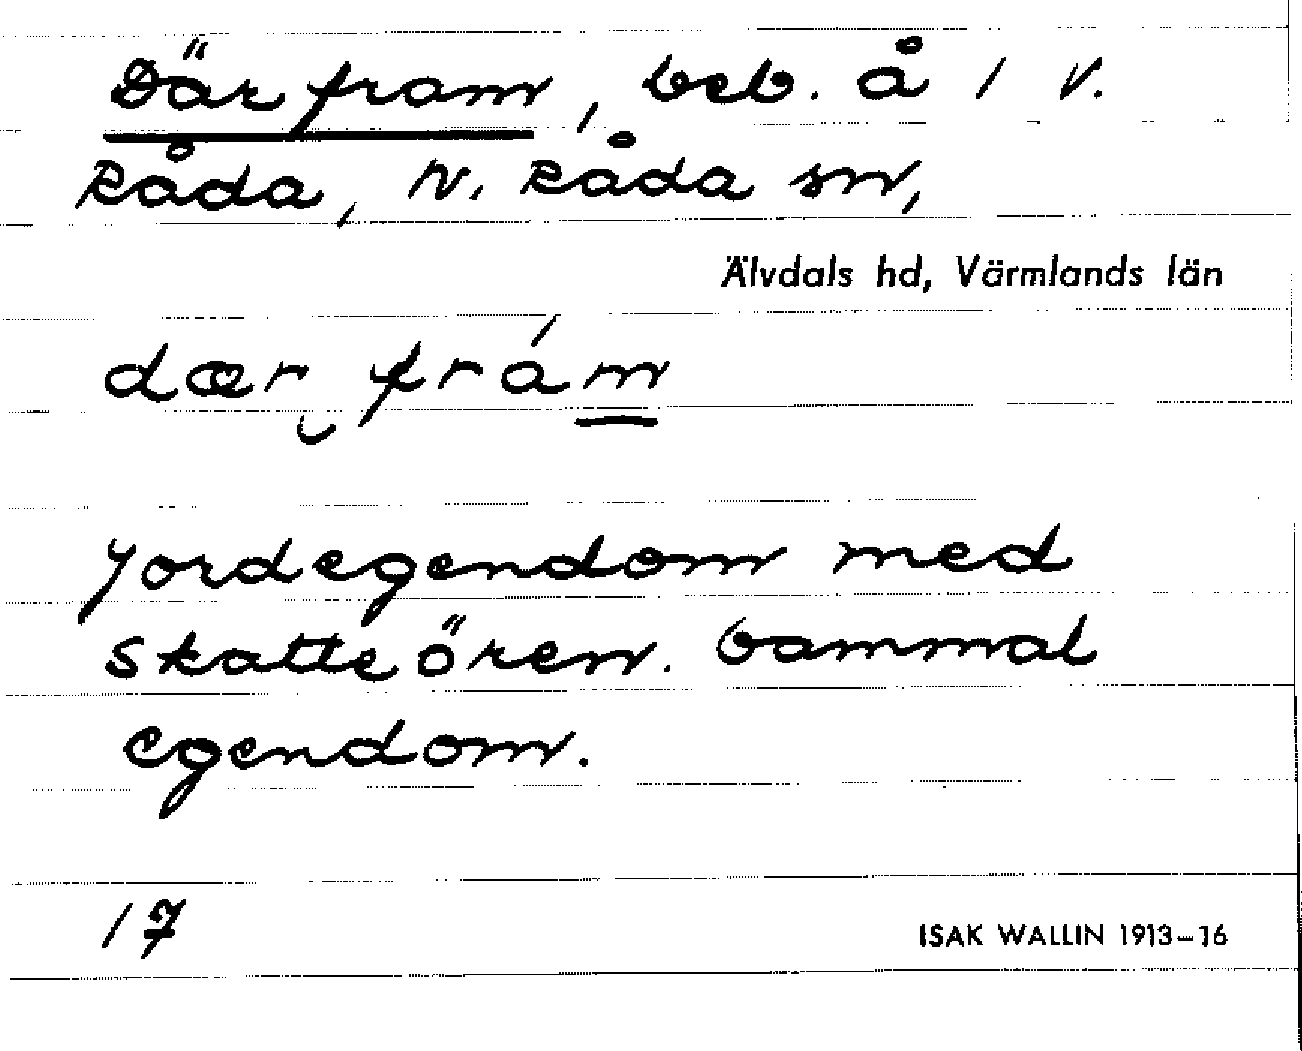 Där fram, beb. å 1 V.
Råda, N. Råda sn,
Älvdals hd, Värmlands län
dær̮ frám
Jordegendom med
skatteören. Gammal
egendom.
17
ISAK WALLIN 1913–16